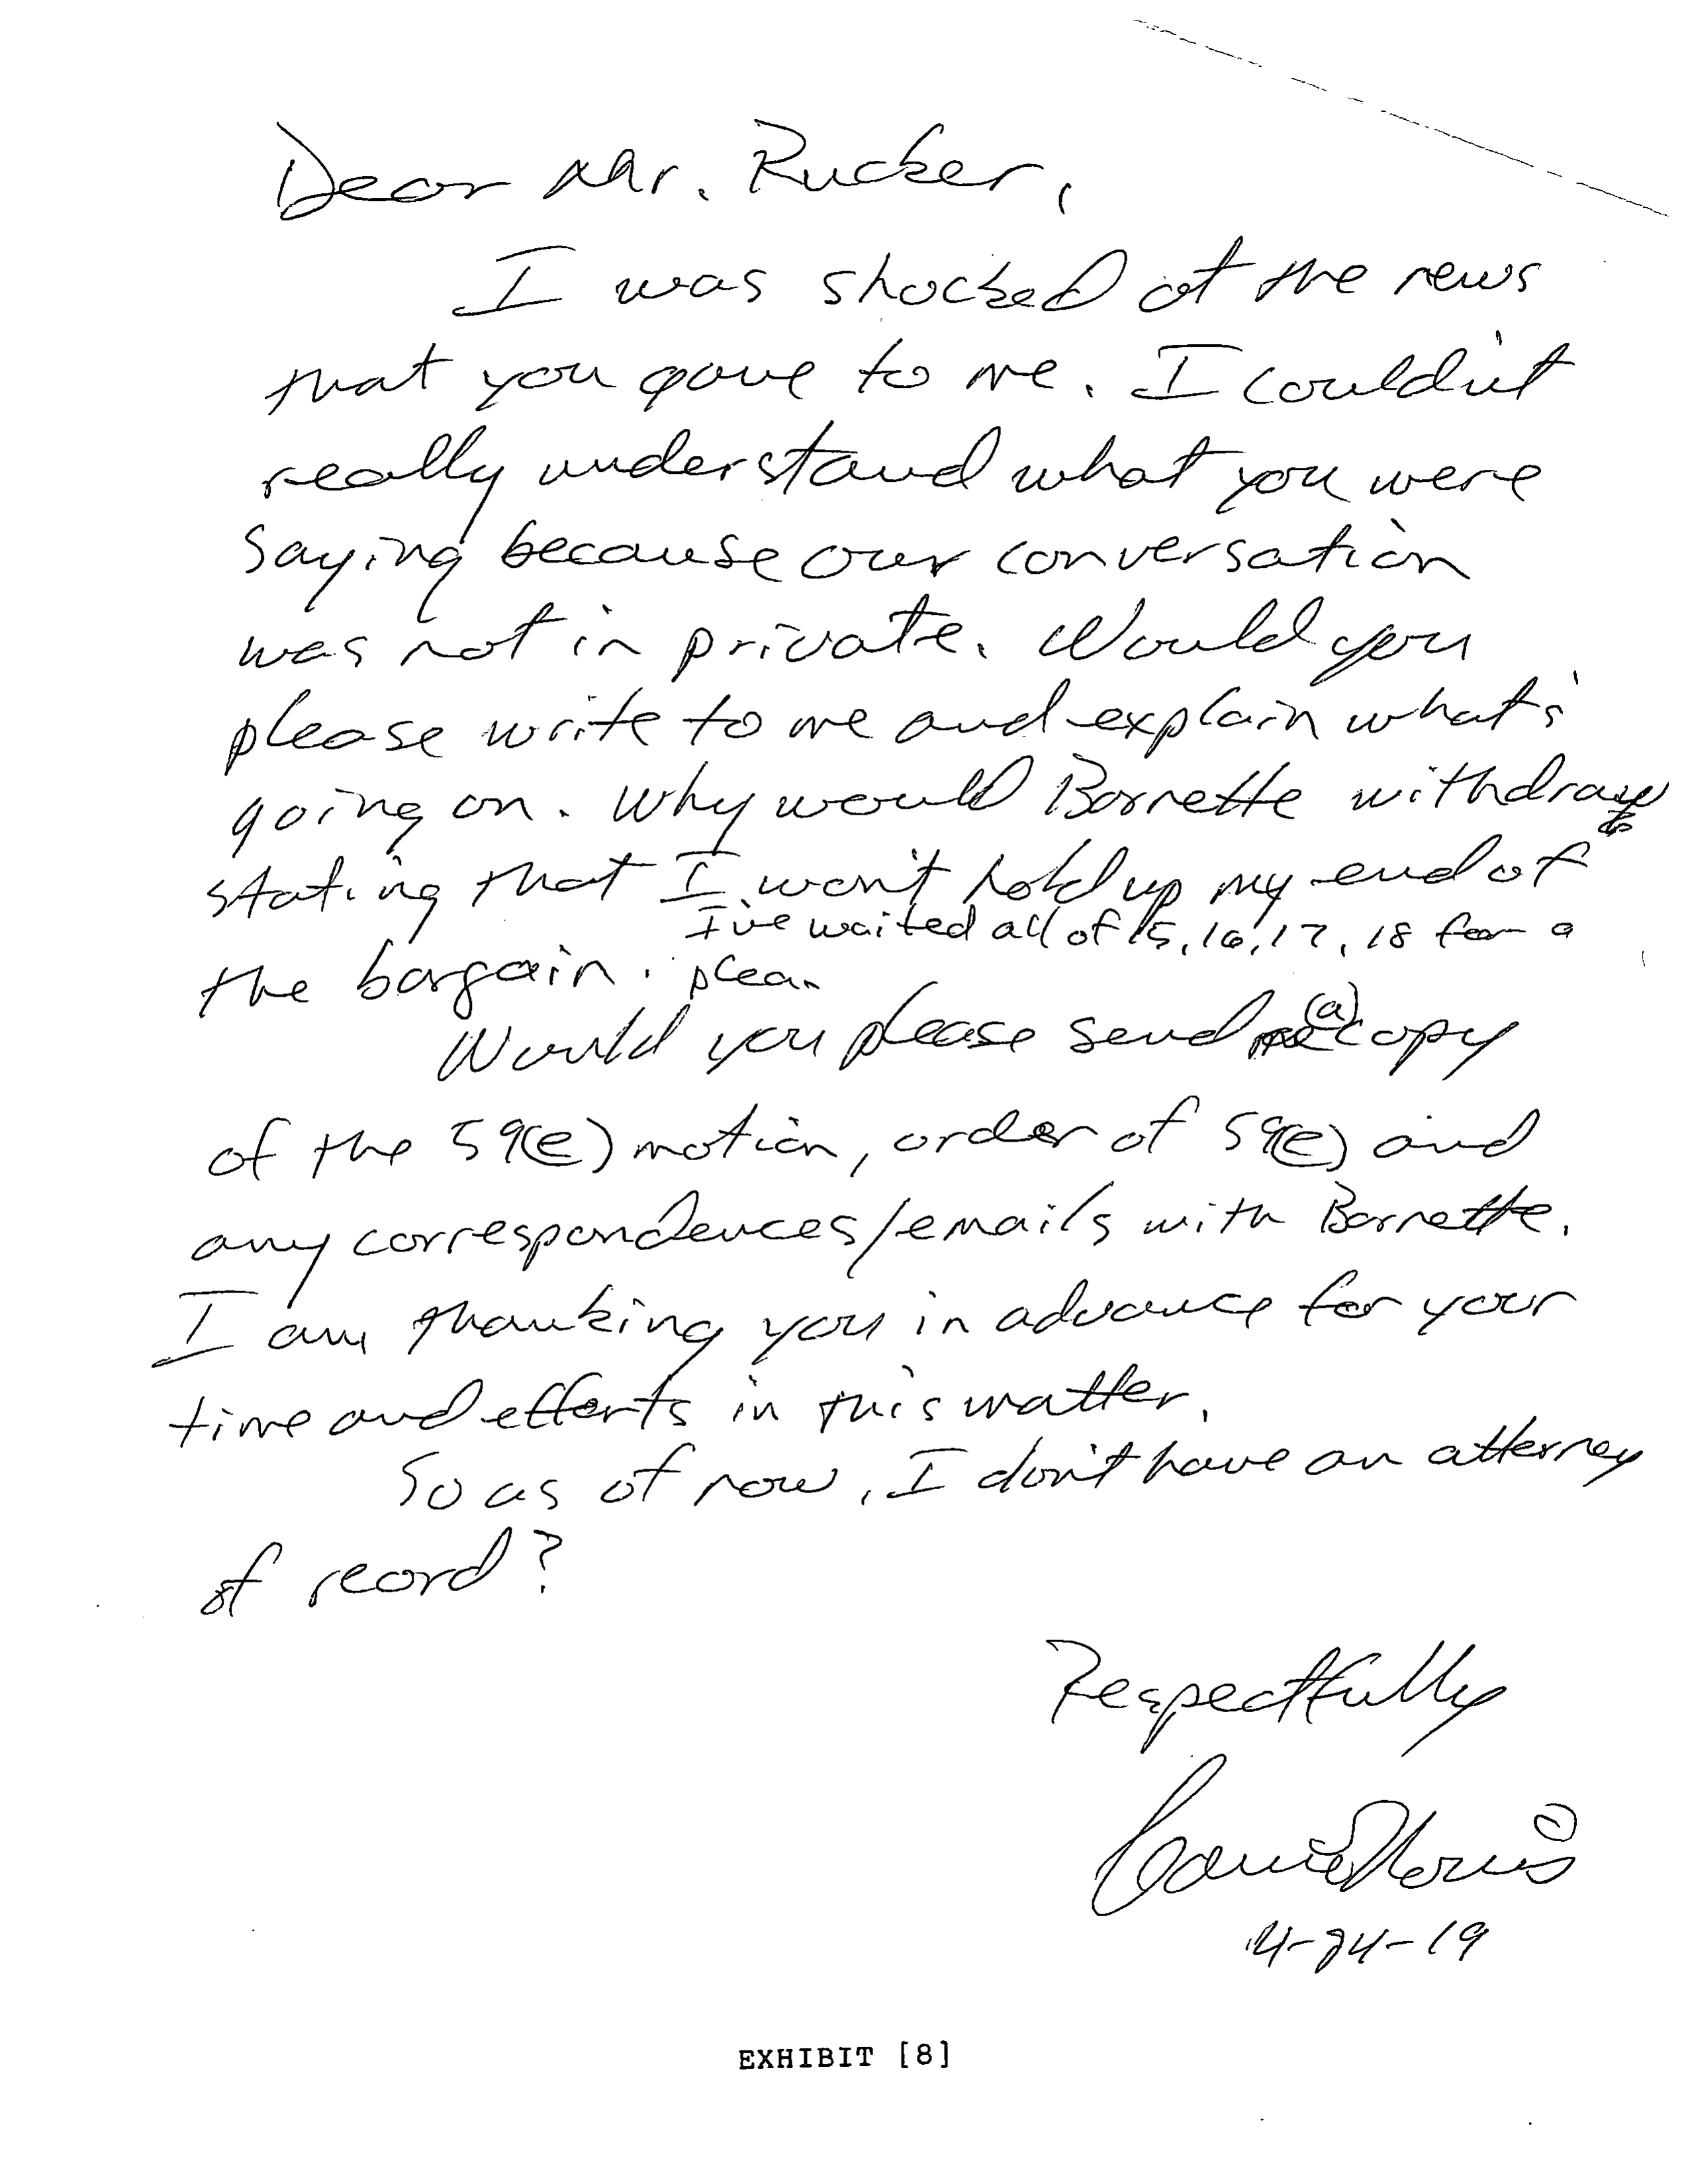 Dear Mr. Rucker,
I was shocked at the news
that you gave to me. I couldn't
really understand what you were
saying because our conversation
was not in private. Would you
please write to me and explain what's
going on. Why would Barrette withdraw
stating that I won't hold up my end of
I've waited all of 15, 16, 17, 18 for a
the bargain. plea.
Would you please send (a) copy
of the 59(e) motion, order of 59(e) and
any correspondences/emails with Barrette.
I am thanking you in advance for your
time and efforts in this matter.
So as of now, I don't have an attorney
of record?
Respectfully
4-24-19
EXHIBIT [8]